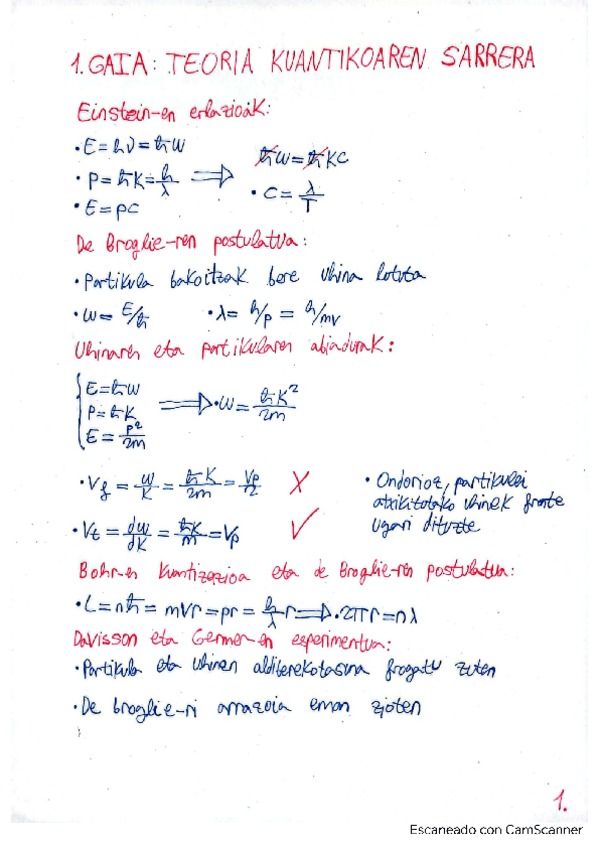 1. GAIA: TEORIA KUANTIKOAREN SARRERA
Einstein-en erlazioak:
• E = hν = ħω
• P = ħK = h/λ ⟹ ħω = ħKC
• E = pc • C = λ/T
De Broglie-ren postulatua:
• Partikula bakoitzak bere uhina lotuta
• ω = E/ħ • λ = h/p = h/mv
Uhinaren eta partikularen abiadurak:
E = ħω
P = ħK ⟹ • ω = ħK²/2m
E = P²/2m
• Vf = ω/K = ħK/2m = Vp/2 X
• Vt = dω/dK = ħK/m = Vp ✓
• Ondorioz, partikulei
atxikitutako uhinek frente
ugari dituzte
Bohr-en kuantizazioa eta de Broglie-ren postulatua:
• L = nħ = mvr = pr = h/λ r ⟹ • 2πr = nλ
Davisson eta Germer-en esperimentua:
• Partikula eta uhinen alditerekotasuna frogatu zuten
• De broglie-ri arrazoia eman zioten
1.
Escaneado con CamScanner